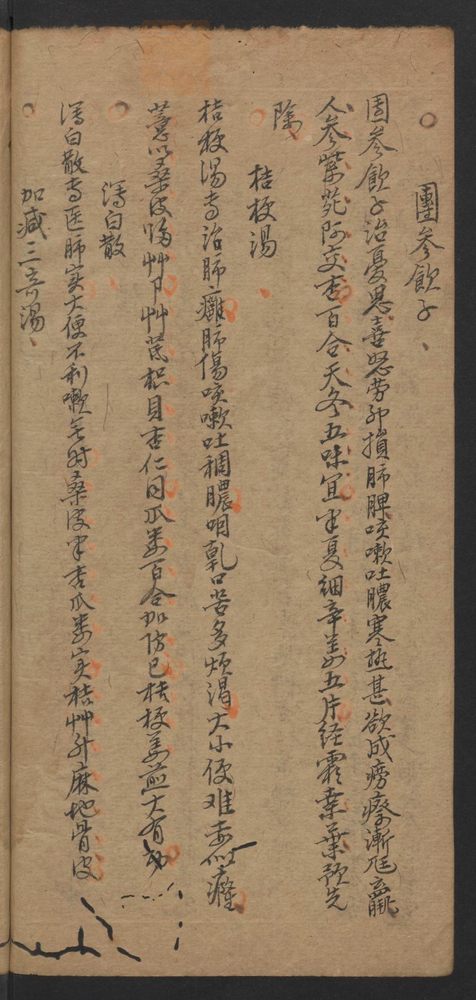 團參飲子
團參飲子治憂思喜怒勞卯損肺脾咳嗽吐膿寒熱甚欲成癆瘵漸尫羸
人參紫菀阿交杏百合天冬五味宜半夏細辛姜五片經霜桑葉預先
除
桔梗湯
桔梗湯專治肺癰肺傷咳嗽吐稠膿咽乾口苦多煩渴大小便难赤似癃
薏以桑皮歸艸下艸芪枳貝杏仁同瓜婁百合加防已桔梗姜煎大有功
瀉白散
瀉白散专医肺实大便不利嗽無时桑皮半杏瓜婁实桔艸升麻地骨皮
加減三奇湯